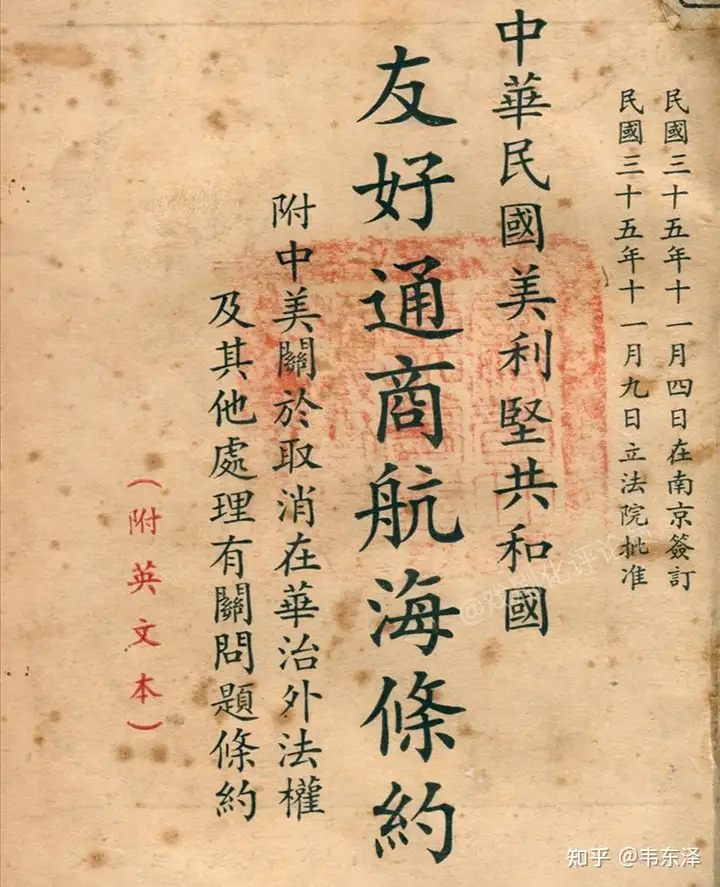 民國三十五年十一月四日在南京簽訂
民國三十五年十一月九日立法院批准
中華民國美利堅共和國
友好通商航海條約
附中美關於取消在華治外法權
及其他處理有關問題條約
（附英文本）
知乎 @韦东泽